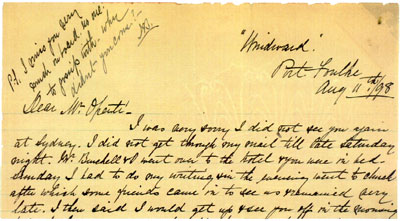 P.S. I miss you very
much on board.
to you both. Why
didn't you come?
"Windward".
Aug 11th /98
Dear Mr
I was very sorry I did not see you again
at Sydney. I did not get through my mail till late Saturday
night. Mr & I went over to the hotel & you were in bed.
Sunday I had to do my writing & in the evening went to church
after which some friends came in to see us & remained very
late. I then said I would get up & see you off in the morning